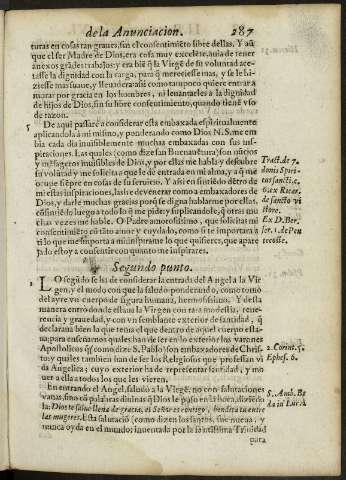 de la Anunciacion. 287
turas en cosas tan graues, sin el consentimiẽto libre dellas. Y aũ
que el ser Madre de Dios, era cosa muy excelẽte, auia de tener
anexos grãdes trabajos: y era biẽ q̃ la Virgẽ de su voluntad ace-
tasse la dignidad con la carga, para q̃ mereciesse mas, y se le hi-
ziesse mas suaue, y lleuadera: assi como tampoco quiere entrar a
morar por gracia en los hombres, ni leuantarles a la dignidad
de hijos de Dios, sin su libre consentimiento, quando tienẽ vso
de razon.
De aqui passarè a considerar esta embaxada espiritualmente
aplicandola à mi mismo, y ponderando como Dios N.S. me em
bia cada dia inuisiblemente muchas embaxadas con sus ins-
piraciones. Las quales (como dize san Buenauentura) son nũcios
y mẽsageros inuisibles de Dios, y por ellas me habla y descubre
su voluntad y me solicita a que le de entrada en mi alma, y a q̃ me
ocupe siẽpre en cosas de su seruicio. Y assi en sintiẽdo dẽtro de
mi estas inspiraciones, las he de venerar como a embaxadores de
Dios, y darle muchas gracias porq̃ se digna hablarme por ellas,
cõsintiẽdo luego a todo lo q̃ me pide; y suplicandole, q̃ otras mu
chas vezes me hable. O Padre amorosissimo, que solicitas mi
consentimiẽto cõ tãto amor y cuydado, como si te importara à
ti lo que me importa a mi: inspirame lo que quisieres, que apare
jado estoy a consentir con quanto me inspirares.
Tract. de 7.
donis Spiri-
tus sancti. c.
6. ex Ricar.
de sancto vi
ctore.
Ex D. Ber.
ser. 1. de Pen
tecoste.
Segundo punto.
1 LO segũdo se ha de considerar la entrada del Angel a la Vir
gen, y el modo con que la saludò ponderando, como tomò
del ayre vn cuerpo de figura humana, hermosissimo. Y desta
manera entrò donde estaua la Virgen con rara modestia, reue-
rencia, y grauedad, y con vn semblante exterior de santidad, q̃
declaraua bien la que tenia el que dentro de aquel cuerpo esta-
ua; para enseñarnos quales han de ser en lo exterior los varones
Apostolicos q̃ (como dize S. Pablo) son embaxadores de Chris-
to, y quales tambien han de ser los Religiosos que professan vi
da Angelica; cuyo exterior ha de representar santidad, y mo
uer a ella a todos los que les vieren.
2. Corint. 5.
Ephes. 6.
En entrando el Angel, saludò a la Virgẽ, no con salutaciones
vanas, sino cõ palabras diuinas q̃ Dios le puso en la boca, diziẽdo
la: Dios te salue llena de gracia, el Señor es contigo, bendita tu entre
las mugeres. Esta salutaciõ (como dizen los santos, fue nueua, y
nunca oyda en el mundo; inuentada por la santissima Trinidad
S. Amb. Be
da in Luc. 1.
para